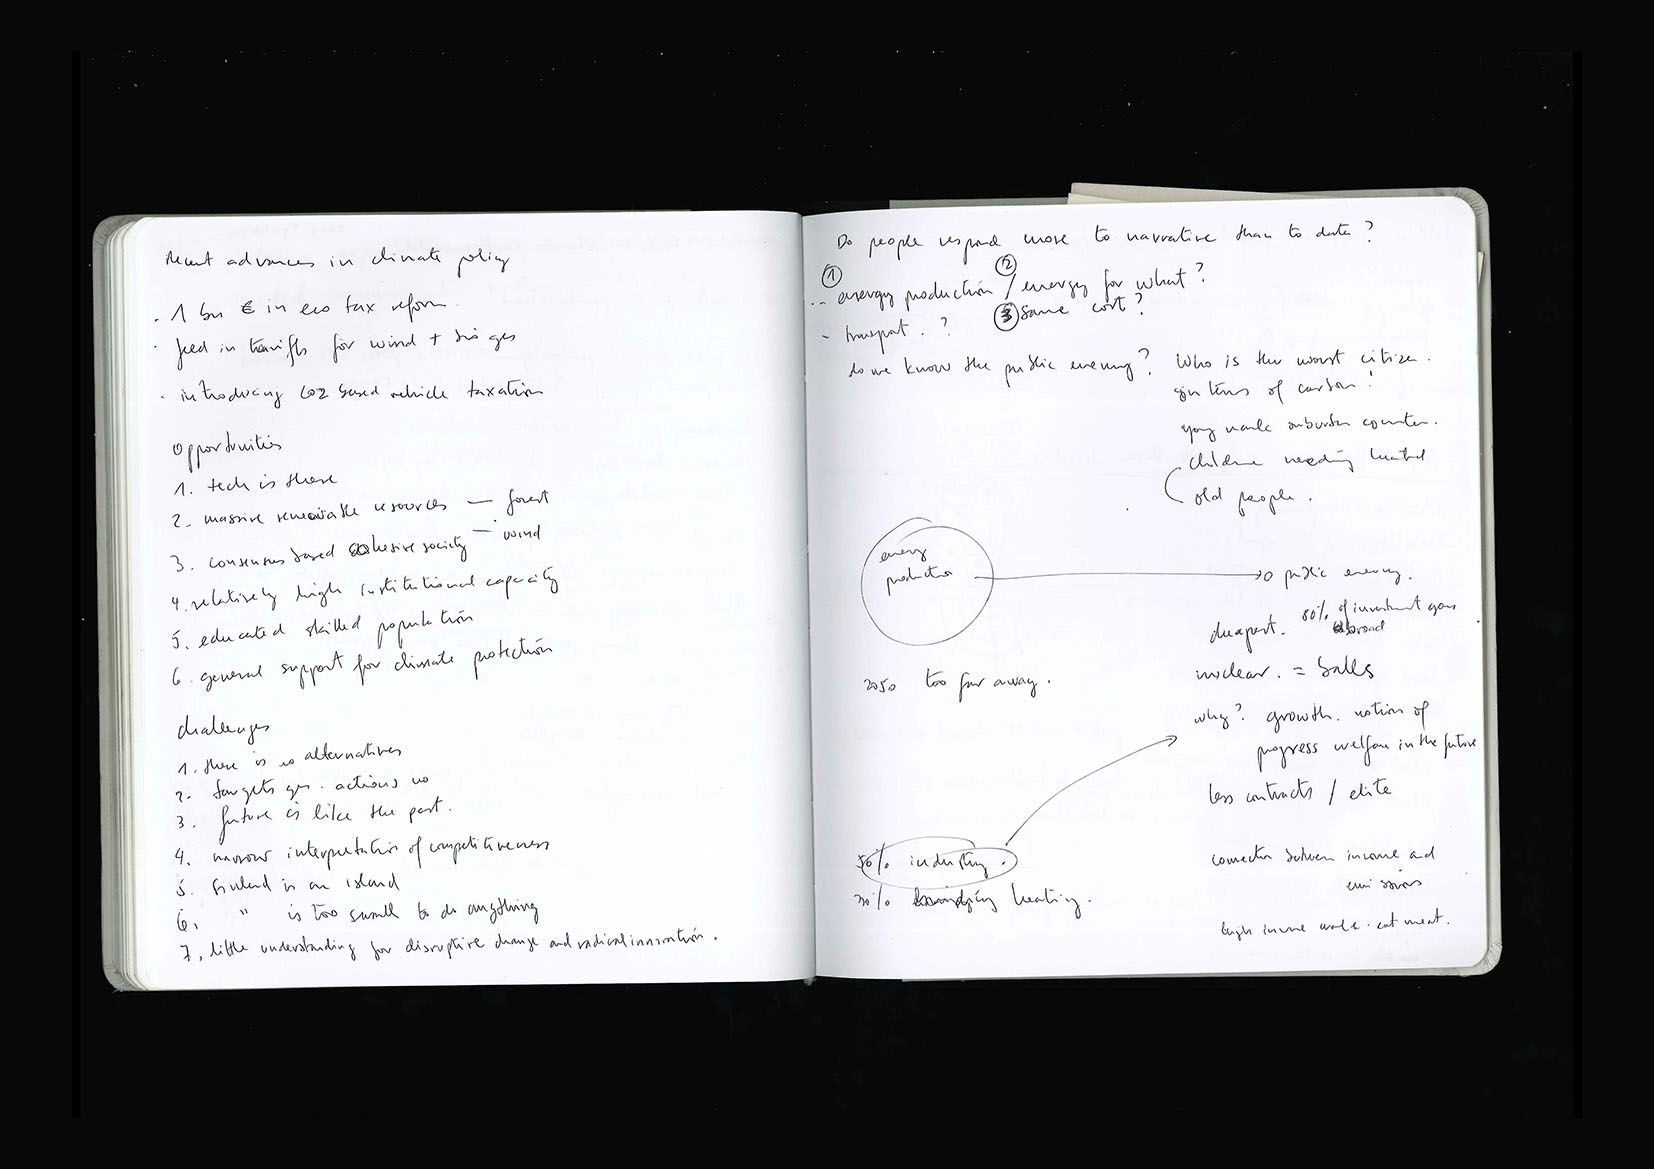 Recent advances in climate policy
. 1 bn € in eco tax reform.
. feed in tariffs for wind + bio gas
. introducing CO2 based vehicle taxation
Opportunities
1. tech is there
2. massive renewable resources — forest
— wind
3. consensus based cohesive society
4. relatively high institutional capacity
5. educated skilled population
6. general support for climate protection
challenges
1. there is no alternatives
2. targets yes. actions no
3. future is like the past.
4. narrow interpretation of competitiveness
5. Finland is an island
6. " is too small to do anything
7. little understanding for disruptive change and radical innovation.
Do people respond more to narrative than to data?
① ②
-- energy production / energy for what?
- transport. ? ③ same cost?
do we know the public enemy?
Who is the worst citizen.
in terms of carbon?
young male suburban commuter.
children needing
old people.
energy
production
public enemy.
cheapest. 80% of investment goes
abroad
nuclear. = balls
2050 too far away.
why? growth. notion of
progress welfare in the future
less contracts / elite
50% industry.
30% heating.
connection between income and
emissions
high income male. eat meat.